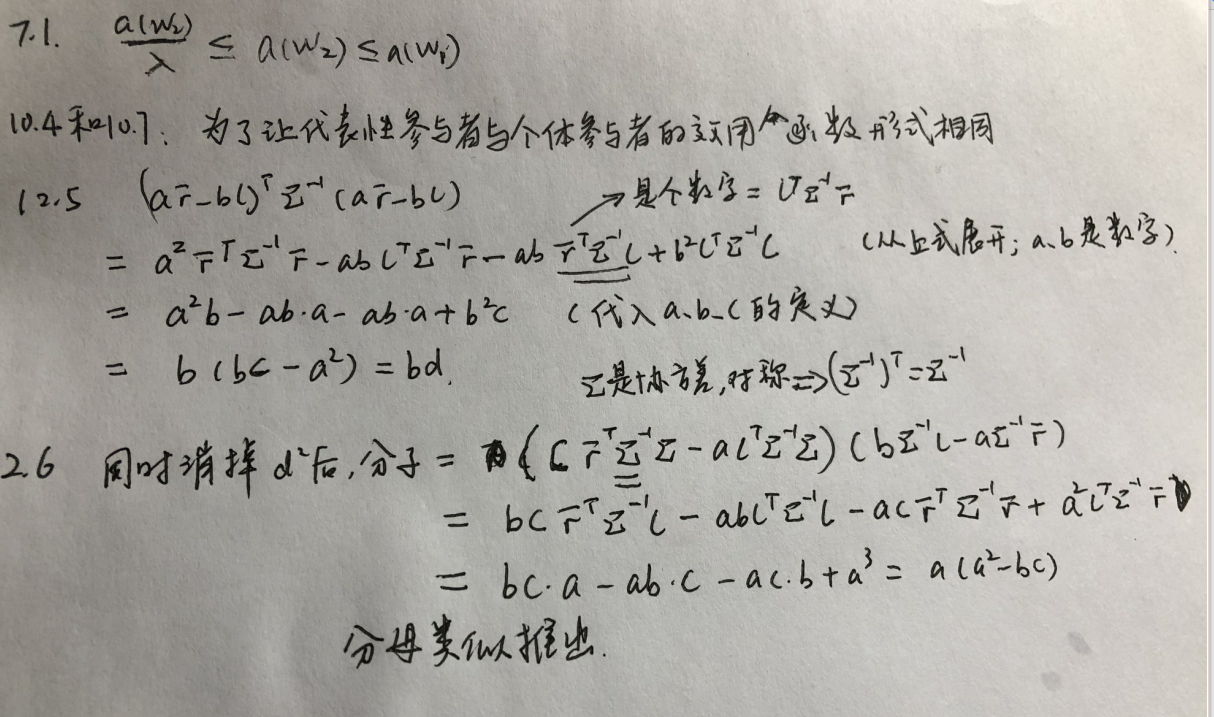 7.1. a(w₂)/λ ≤ a(w₂) ≤ a(w₁)
10.4和10.7: 为了让代表性参与者与个体参与者的效用函数形式相同
12.5 (ar̄-bl)ᵀΣ⁻¹(ar̄-bl) → 是个数字 = lᵀΣ⁻¹r̄
= a²r̄ᵀΣ⁻¹r̄ - ablᵀΣ⁻¹r̄ - ab r̄ᵀΣ⁻¹l + b²lᵀΣ⁻¹l (从上式展开; a、b是数字)
= a²b - ab·a - ab·a + b²c (代入a、b、c的定义)
= b(bc - a²) = bd. Σ是协方差, 对称 ⇒ (Σ⁻¹)ᵀ = Σ⁻¹
2.6 同时消掉d²后, 分子 = (c r̄ᵀΣ⁻¹Σ - alᵀΣ⁻¹Σ)(bΣ⁻¹l - aΣ⁻¹r̄)
= bc r̄ᵀΣ⁻¹l - ablᵀΣ⁻¹l - ac r̄ᵀΣ⁻¹r̄ + a²lᵀΣ⁻¹r̄
= bc·a - ab·c - ac·b + a³ = a(a²-bc)
分母类似推出.